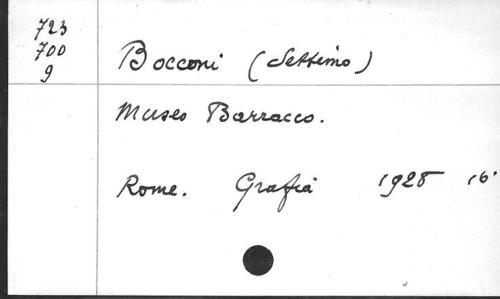 723
700
9
Bocconi (Settimio)
Museo Barracco.
Rome. Grafia 1928 16°